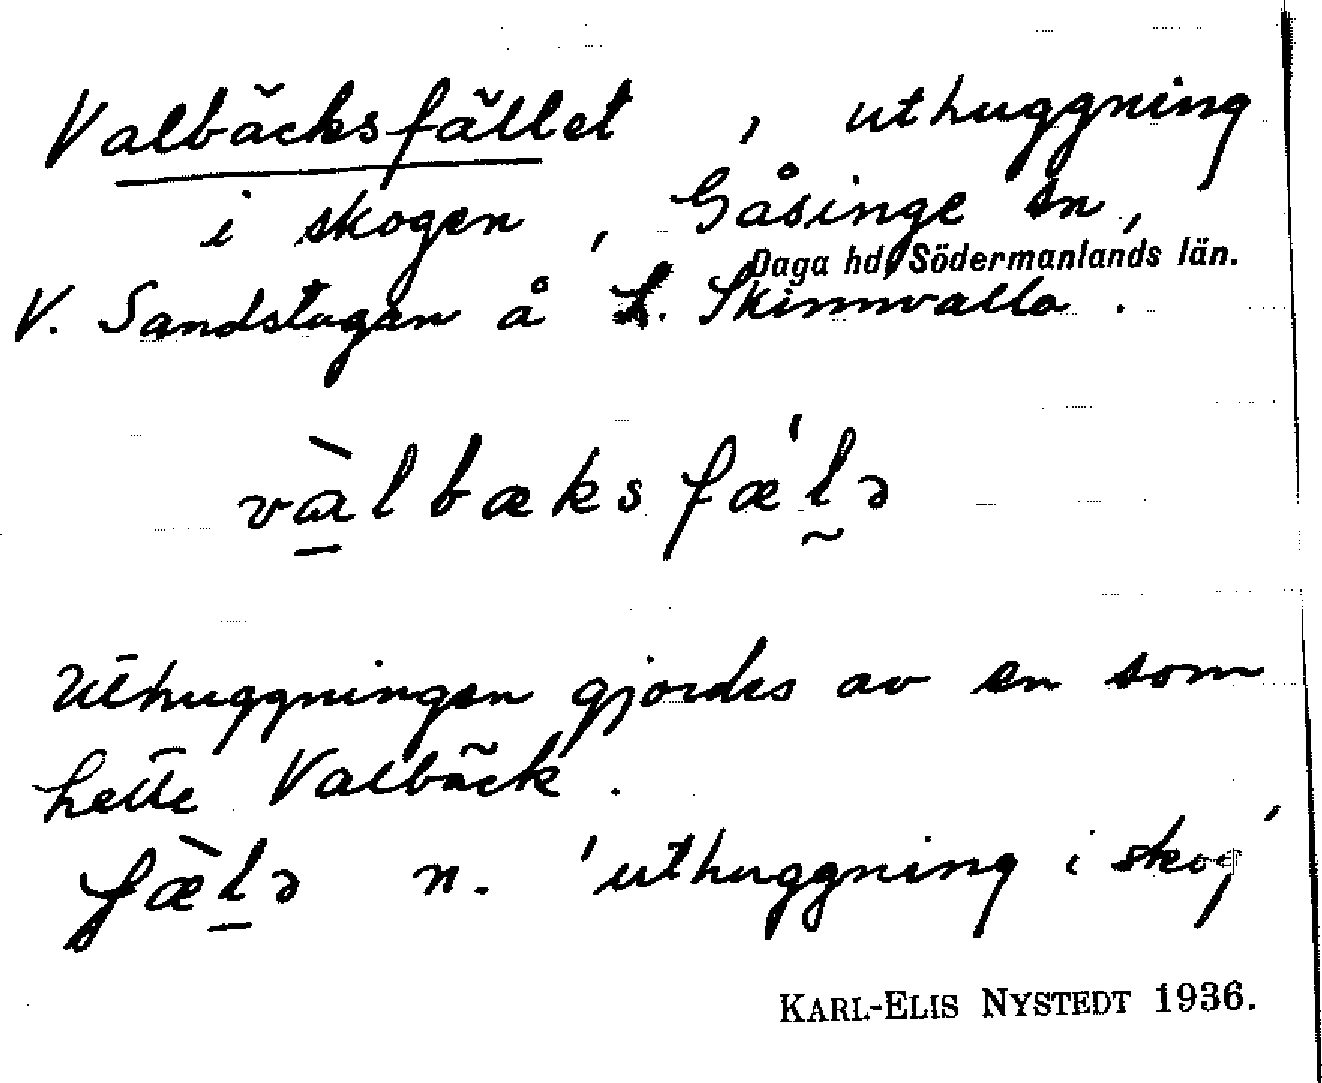 Valbäcksfället, uthuggning
i skogen, Gåsinge sn,
Daga hd, Södermanlands län.
V. Sandstugan å L. Skinnvalla.
vàlbæksfæ'lə
Uthuggningen gjordes av en som
hette Valbäck.
fæ̀lə n. 'uthuggning i skog'
KARL-ELIS NYSTEDT 1936.